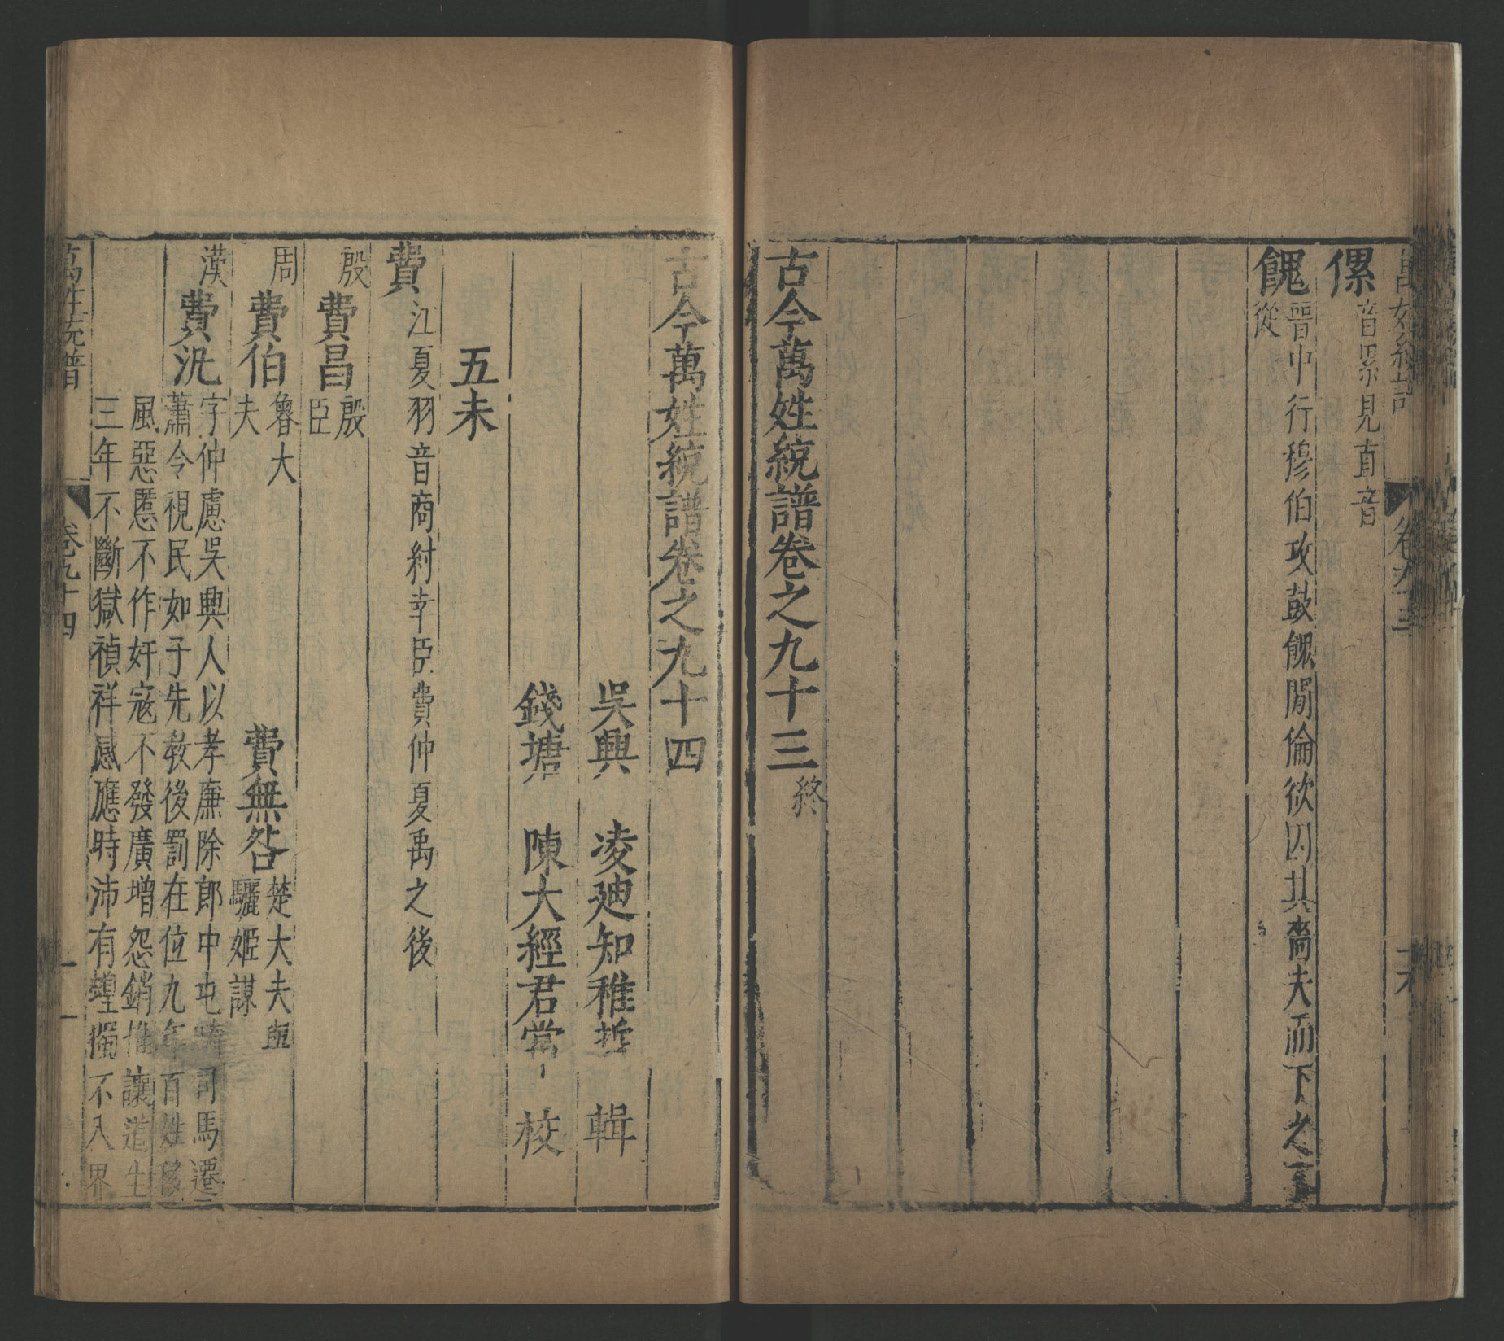 傫
音累見直音
餽
晋中行穆伯攻鼓餽間倫欲囚其嗇夫而下之
從
古今萬姓統譜卷之九十三
終
古今萬姓統譜卷之九十四
吳興 凌廸知稚哲 輯
錢塘 陳大經君常 校
五未
費
江夏羽音商紂幸臣費仲夏禹之後
殷
費昌
殷
臣
周
費伯
魯大
夫
費無咎
楚大夫與
驪姬謀
漢
費汎
字仲慮吳興人以孝廉除郎中屯騎司馬遷
蕭令視民如子先教後罰在位九年百姓
風惡慝不作奸寇不發廣增怨銷推讓道生
三年不斷獄禎祥感應時沛有蝗獨不入界
萬姓統譜
卷九十四
一